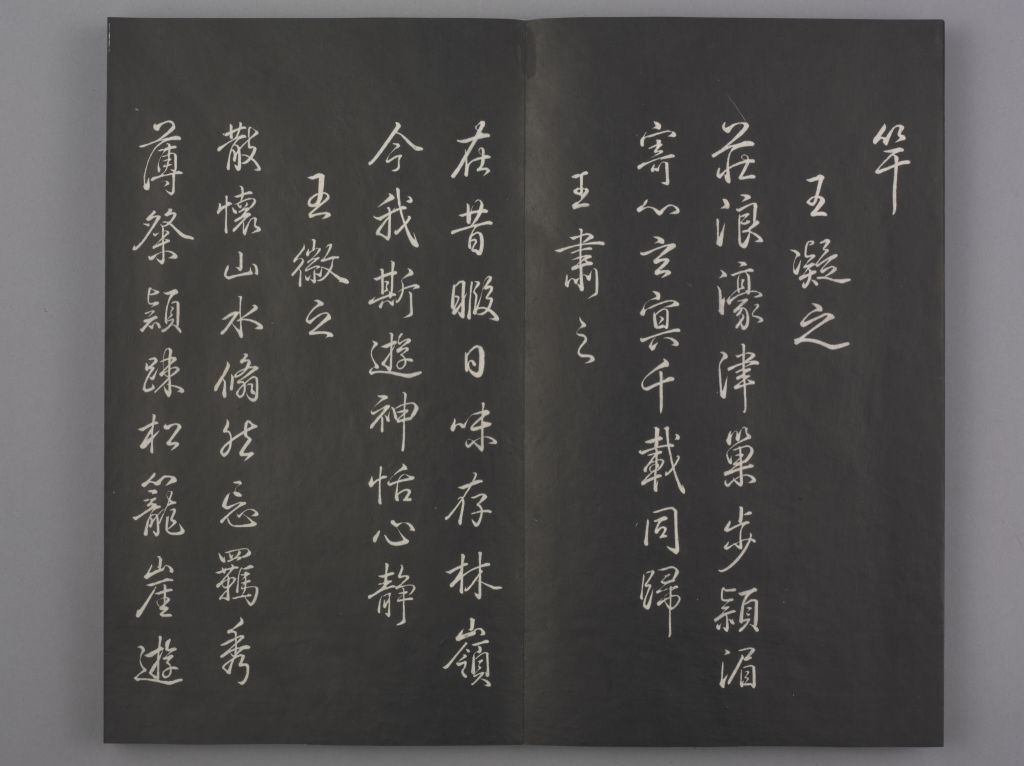 竿
王凝之
莊浪濠津巢步潁湄
寄心玄冥千載同歸
王肅之
在昔暇日味存林嶺
今我斯遊神怡心静
王徽之
散懷山水翛然忘羈秀
薄粲穎踈松籠崖遊